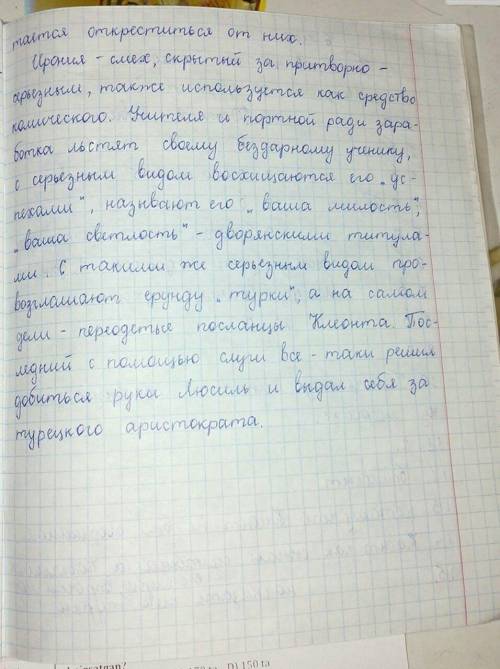 тается откреститься от них.
Ирония - смех, скрытый за притворно -
серьезным, также используется как средство
комического. Учителя и портной ради зара-
ботка льстят своему бездарному ученику,
с серьезным видом восхищаются его „ус-
пехами", называют его „ваша милость",
„ваша светлость" - дворянскими титула-
ми. С такими же серьезным видом про-
возглашают ерунду „турки", а на самом
дели - переодетые посланцы Клеонта. Пос-
ледний с помощью слуги все - таки решил
добиться руки Люсиль и выдал себя за
турецкого аристократа.
D) 150 ta